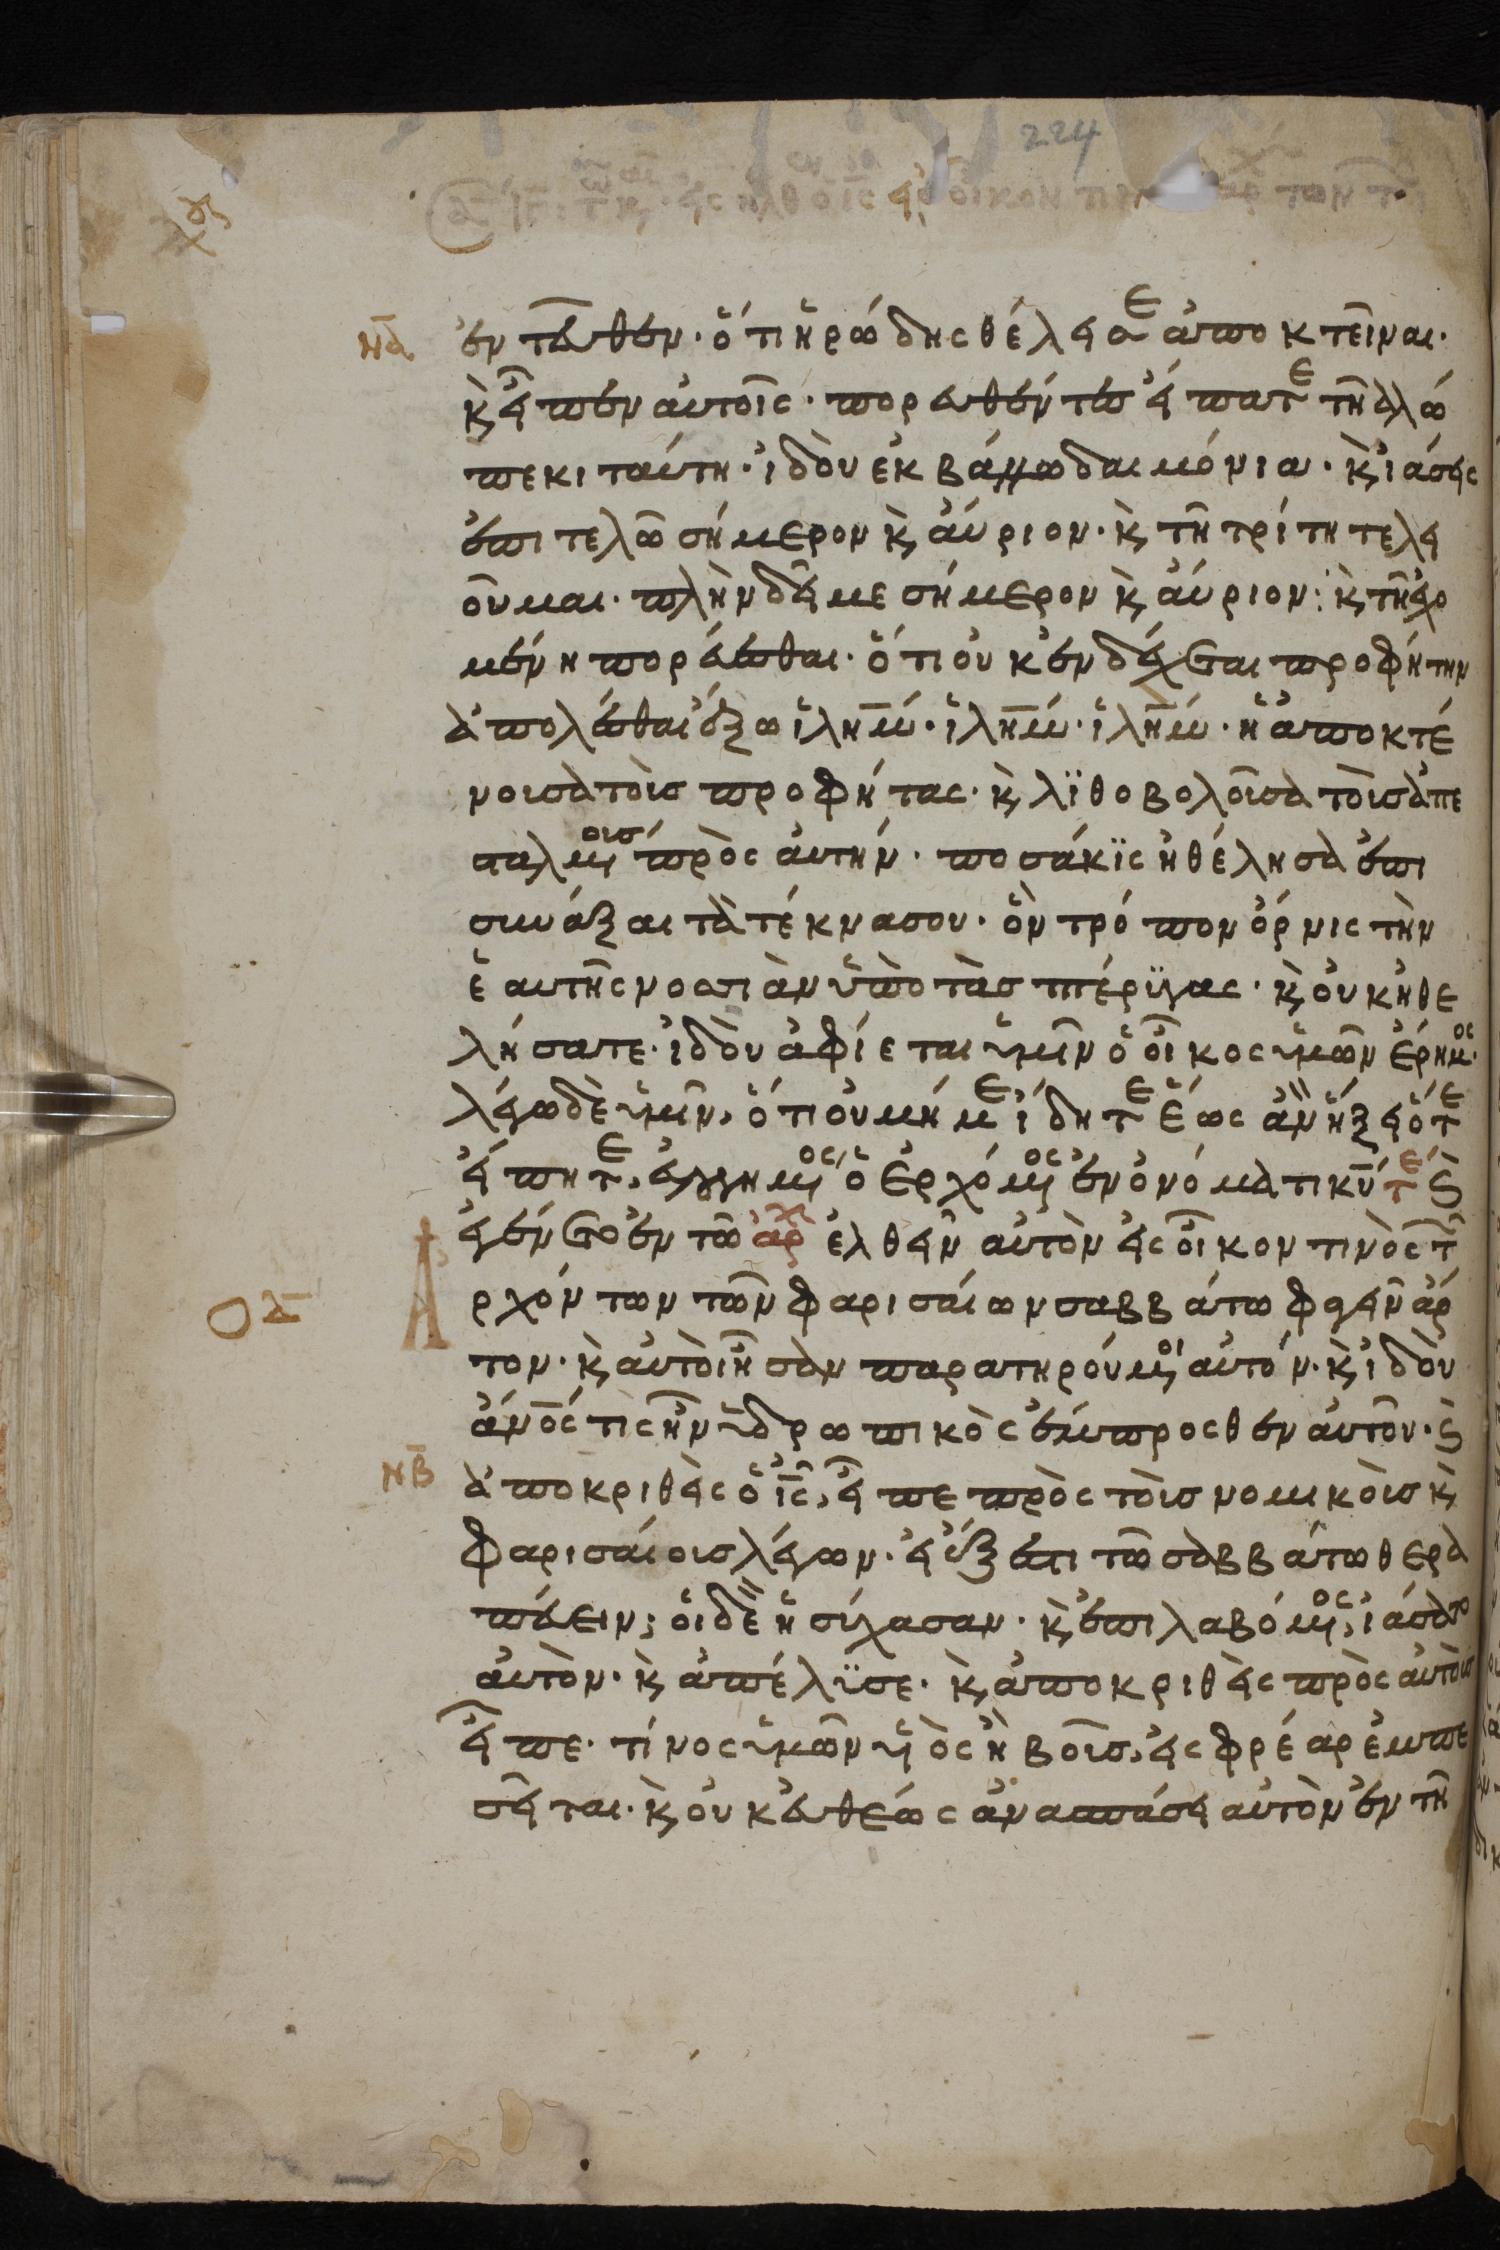 224
εἰς οἶκον
να
ἐντεῦθεν· ὅτι ἡρώδης θέλει σε ἀποκτεῖναι·
κ̀ εἶπεν αὐτοῖς· πορευθέντες εἴπατε τῆ ἀλώ
πεκι ταύτη· ἰδοὺ ἐκβάλλω δαιμόνια· κ̀ ἰάσεις
ἐπιτελῶ σήμερον κ̀ ἄυριον· κ̀ τῆ τρίτη τελει
οῦμαι· πλὴν δεῖ με σήμερον κ̀ ἄυριον· κ̀ τῆ ἐρχο
μένη πορεύεσθαι· ὅτι οὐκ ἐνδέχεται προφήτην
ἀπολέσθαι ἔξω ἰλη̅μ· ἰλη̅μ· ἰλη̅μ· ἡ ἀποκτέ
νουσα τοὺς προφήτας· κ̀ λϊθοβολοῦσα τοὺς ἀπε
σταλμένους πρὸς αὐτήν· ποσάκϊς ἠθέλησα ἐπι
συνάξαι τὰ τέκνα σου· ὃν τρόπον ὄρνις τὴν
ἑαυτῆς νοσσιὰν ὑπὸ τὰς πτέρϋγας· κ̀ οὐκ ἠθε
λήσατε· ἰδοὺ ἀφίεται ὑμῖν ὁ οἶκος ὑμῶν ἔρημος·
λέγω δὲ ὑμῖν, ὅτι οὐ μή με ἴδητε ἕως ἂν ἥξει ὅτε
εἴπητε, εὐλογημένος ὁ ἐρχόμενος ἐν ὀνόματι κ̅υ τε κ̀
ἐγένετο ἐν τῶ αρχ ἐλθεῖν αὐτὸν εἰς οἶκον τινὸς τῶν
οα
ἀρχόντων τῶν φαρισαίων σαββάτω φαγεῖν ἄρ
τον· κ̀ αὐτοὶ ἦσαν παρατηρούμενοι αὐτόν· κ̀ ἰδοὺ
ἄν̅ος τις ἦν ὑδρωπικὸς ἔμπροσθεν αὐτοῦ· κ̀
νβ
ἀποκριθεὶς ὁ ι̅ς, εἶπε πρὸς τοὺς νομικοὺς κ̀
φαρισαίους λέγων· εἰ ἔξεστι τῶ σαββάτω θερα
πεύειν; οἱ δὲ ἡσύχασαν· κ̀ ἐπιλαβόμενος, ἰάσατο
αὐτὸν· κ̀ ἀπέλϋσε· κ̀ ἀποκριθεὶς πρὸς αὐτοὺς
εἶπε· τίνος ὑμῶν ὑιὸς ἢ βοῦς, εἰς φρέαρ ἐμπε
σεῖται· κ̀ οὐκ εὐθεώς ἀνασπάσει αὐτὸν ἐν τῆ